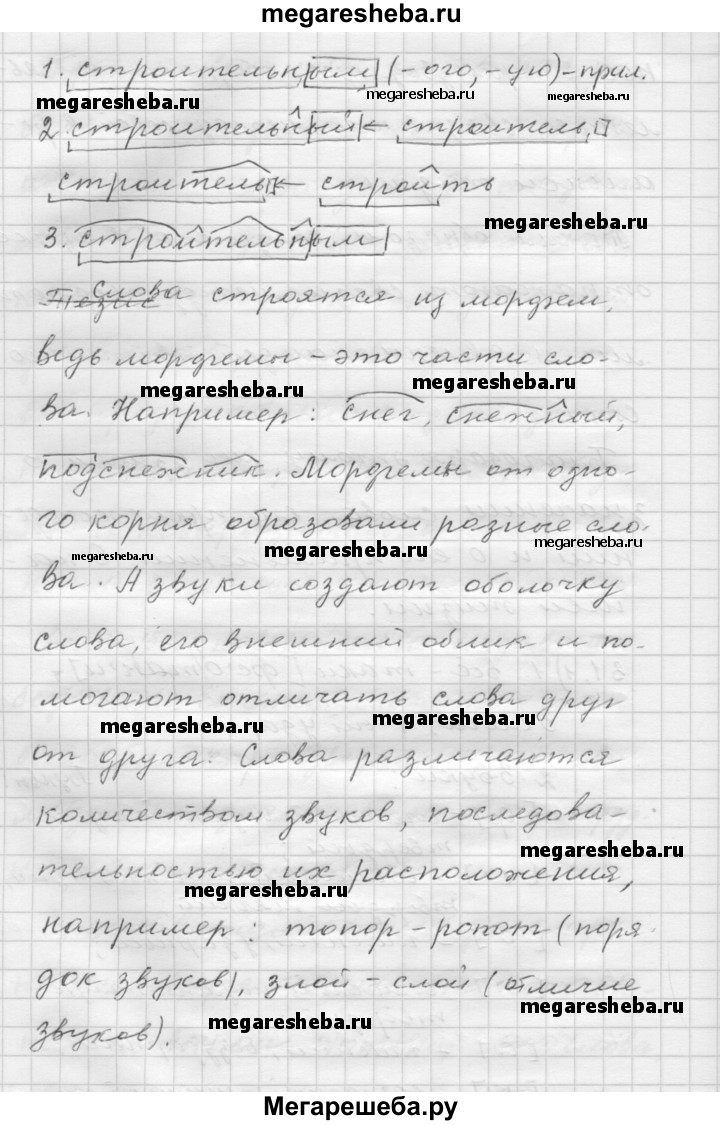 megaresheba.ru
1. строительным (-ого, -ую) - прил.
megaresheba.ru megaresheba.ru megaresheba.ru
2 строительный ← строитель
строитель ← строить
megaresheba.ru
3. строительным
Тезис Слова строятся из морфем,
ведь морфемы - это части сло-
megaresheba.ru megaresheba.ru
ва. Например: снег, снежный,
подснежник. Морфемы от одно-
го корня образовали разные сло-
megaresheba.ru megaresheba.ru megaresheba.ru
ва. А звуки создают оболочку
слова, его внешний облик и по-
могают отличать слова друг
megaresheba.ru megaresheba.ru
от друга. Слова различаются
количеством звуков, последова-
megaresheba.ru
тельностью их расположения,
megaresheba.ru
например: топор - ропот (поря
док звуков), злой - слой (отличие
megaresheba.ru megaresheba.ru
звуков).
Мегарешеба.ру